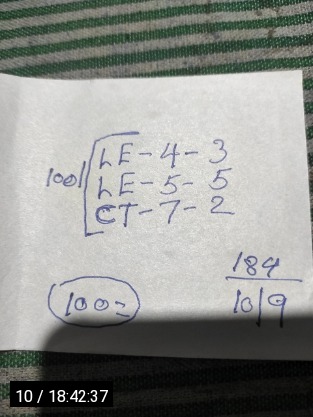 LE-4-3
1001 LE-5-5
CT-7-2
100=
184
10/9
10 / 18:42:37